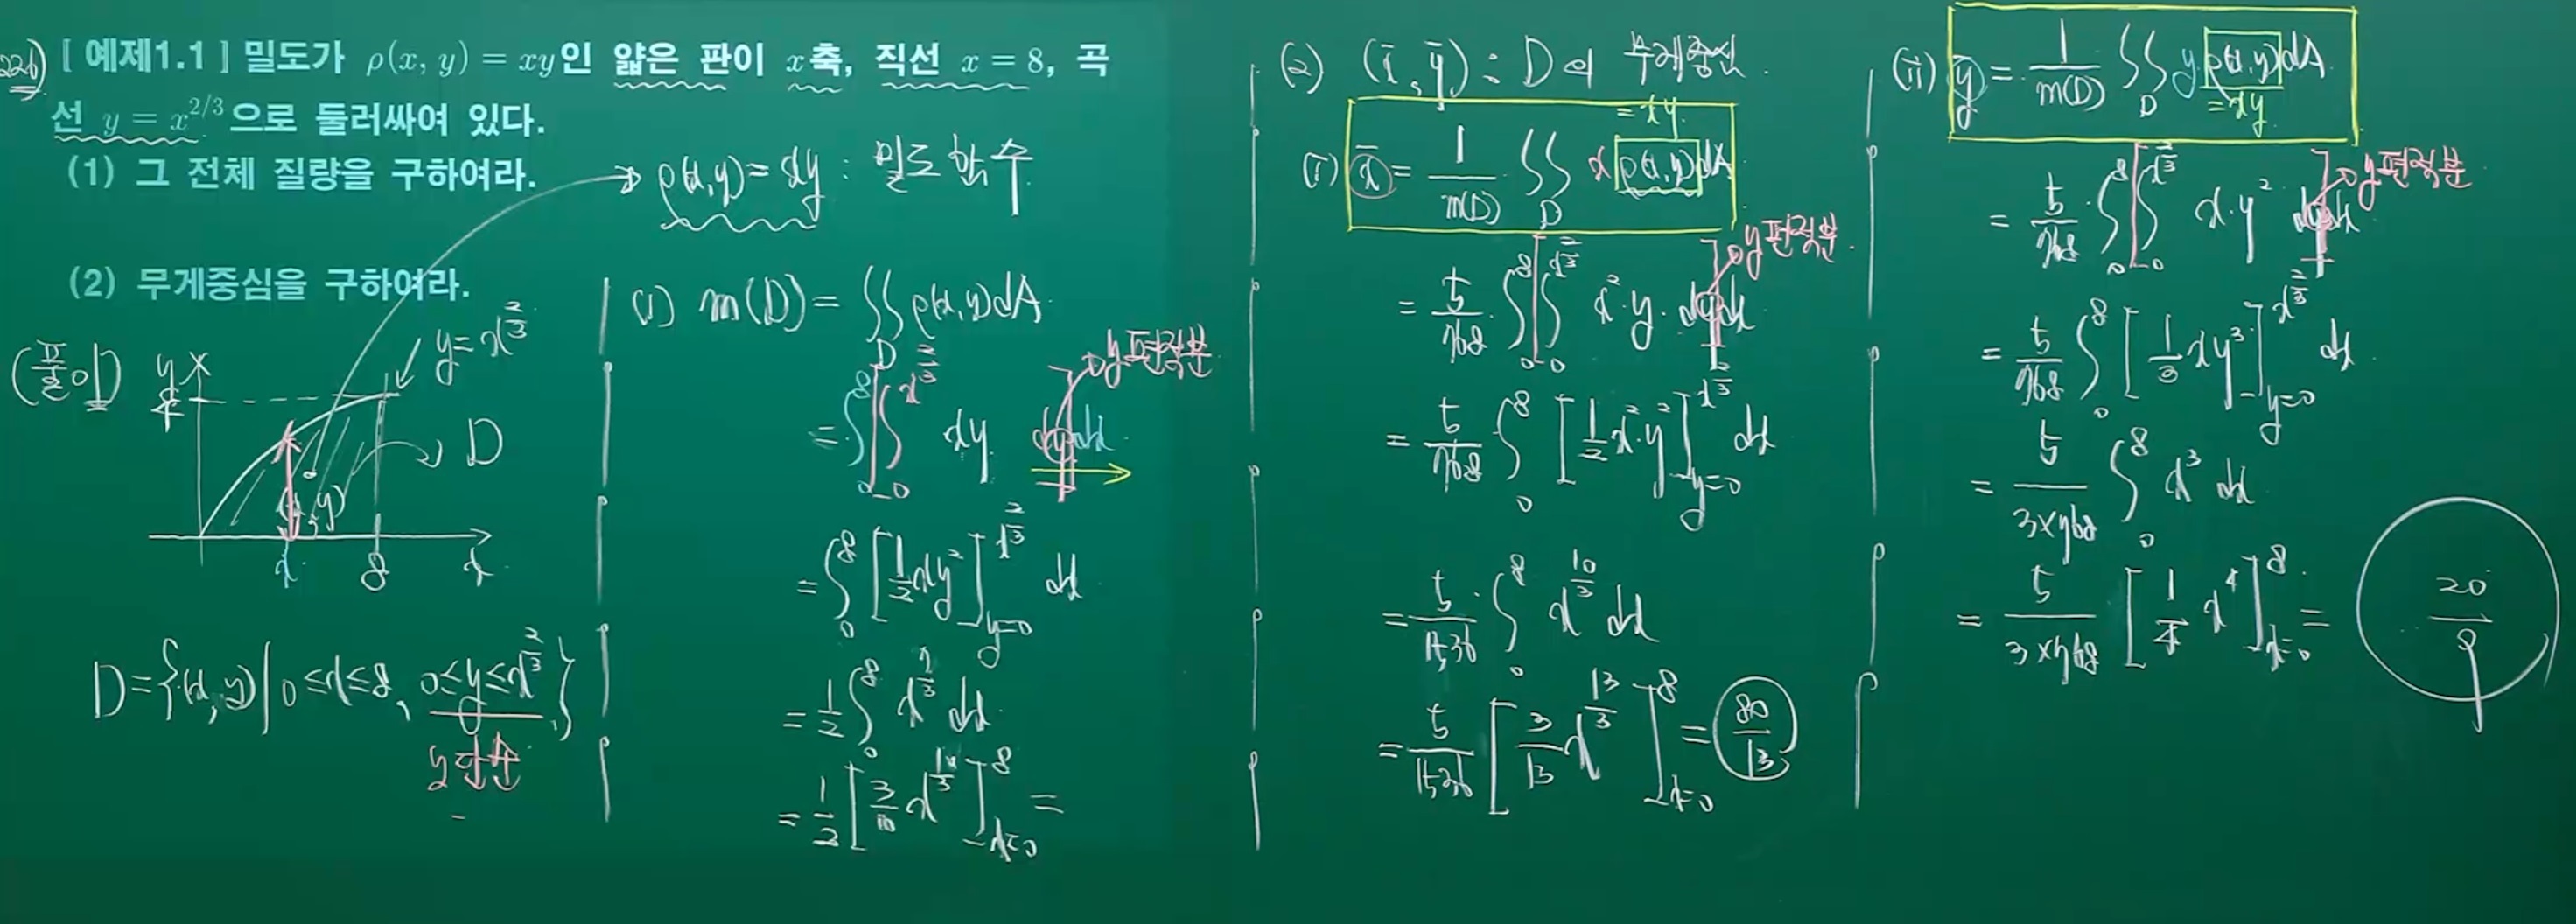 226) [ 예제1.1 ] 밀도가 ρ(x, y) = xy인 얇은 판이 x축, 직선 x = 8, 곡
선 y = x^{2/3}으로 둘러싸여 있다.
(1) 그 전체 질량을 구하여라.
(2) 무게중심을 구하여라.
(풀이)
y
4
y = x^{2/3}
D
(x, y)
x 8 x
D = {(x, y) | 0 ≤ x ≤ 8, 0 ≤ y ≤ x^{2/3}}
ρ(x, y) = xy : 밀도함수
(1) m(D) = ∬_D ρ(x, y) dA
= ∫_0^8 ∫_0^{x^{2/3}} xy dy dx
y편적분
= ∫_0^8 [1/2 xy^2]_{y=0}^{x^{2/3}} dx
= 1/2 ∫_0^8 x^{7/3} dx
= 1/2 [3/10 x^{10/3}]_{x=0}^8 =
(2) (x̄, ȳ) : D의 무게중심.
(i) x̄ = 1/m(D) ∬_D x ρ(x, y) dA
= xy
= 5/768 ∫_0^8 ∫_0^{x^{2/3}} x^2·y· dy dx
y편적분.
= 5/768 ∫_0^8 [1/2 x^2·y^2]_{y=0}^{x^{2/3}} dx
= 5/1536 · ∫_0^8 x^{10/3} dx
= 5/1536 [3/13 x^{13/3}]_{x=0}^8 = 80/13
(ii) ȳ = 1/m(D) ∬_D y ρ(x, y) dA
= xy
= 5/768 ∫_0^8 ∫_0^{x^{2/3}} x·y^2 dy dx
y편적분
= 5/768 ∫_0^8 [1/3 xy^3]_{y=0}^{x^{2/3}} dx
= 5/3×768 ∫_0^8 x^3 dx
= 5/3×768 [1/4 x^4]_{x=0}^8 = 20/9